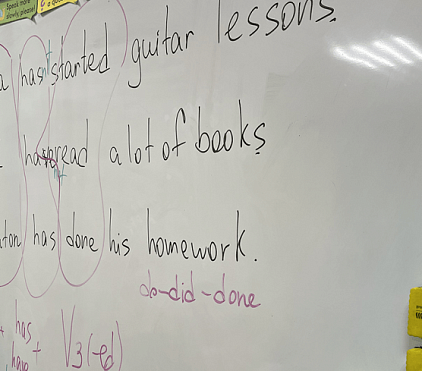 Speak more slowly, please!
a hasn't started guitar lessons.
haven't read a lot of books
ton has done his homework.
do-did-done
+ has
have + V3(-ed)